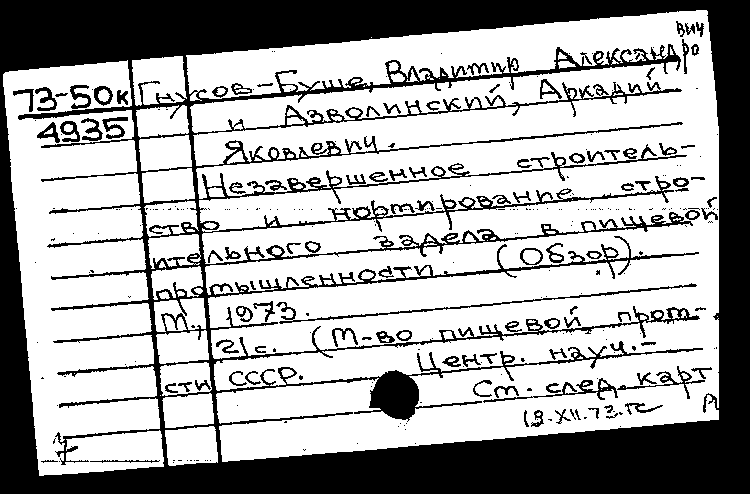 73-50к
4935
Гнусов-Буше, Владимир Александро
вич
и Азволинский, Аркадий
Яковлевич.
Незавершенное строитель-
ство и нормирование стро-
ительного задела в пищевой
промышленности. (Обзор).
М., 1973.
21с. (М-во пищевой пром-
сти СССР. Центр. науч.-
См. след. карт
13.XII.73.
7